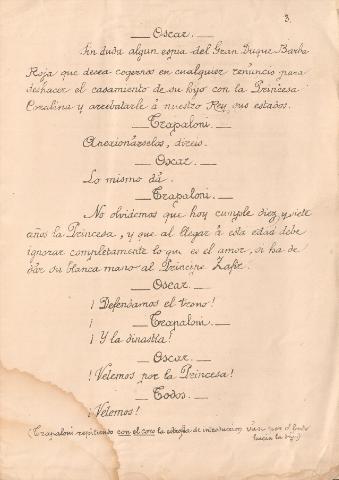 3.
Oscar.
Sin duda algun espia del Gran Duque Barba
Roja que desea cogernos en cualquier renuncio para
deshacer el casamiento de su hijo con la Princesa
Coralina y arrebatarle á nuestro Rey sus estados.
Trapaloni.
Anexionárselos, direis.
Oscar.
Lo mismo dá.
Trapaloni.
No olvidemos que hoy cumple diez y siete
años la Princesa, y que al llegar á esta edad debe
ignorar completamente lo que es el amor, si ha de
dar su blanca mano al Principe Zafir.
Oscar.
¡Defendamos el trono!
¡ Trapaloni.
¡Y la dinastia!
Oscar.
¡Velemos por la Princesa!
Todos.
¡Velemos!
(Trapaloni repitiendo con el coro la estrofa de introduccion